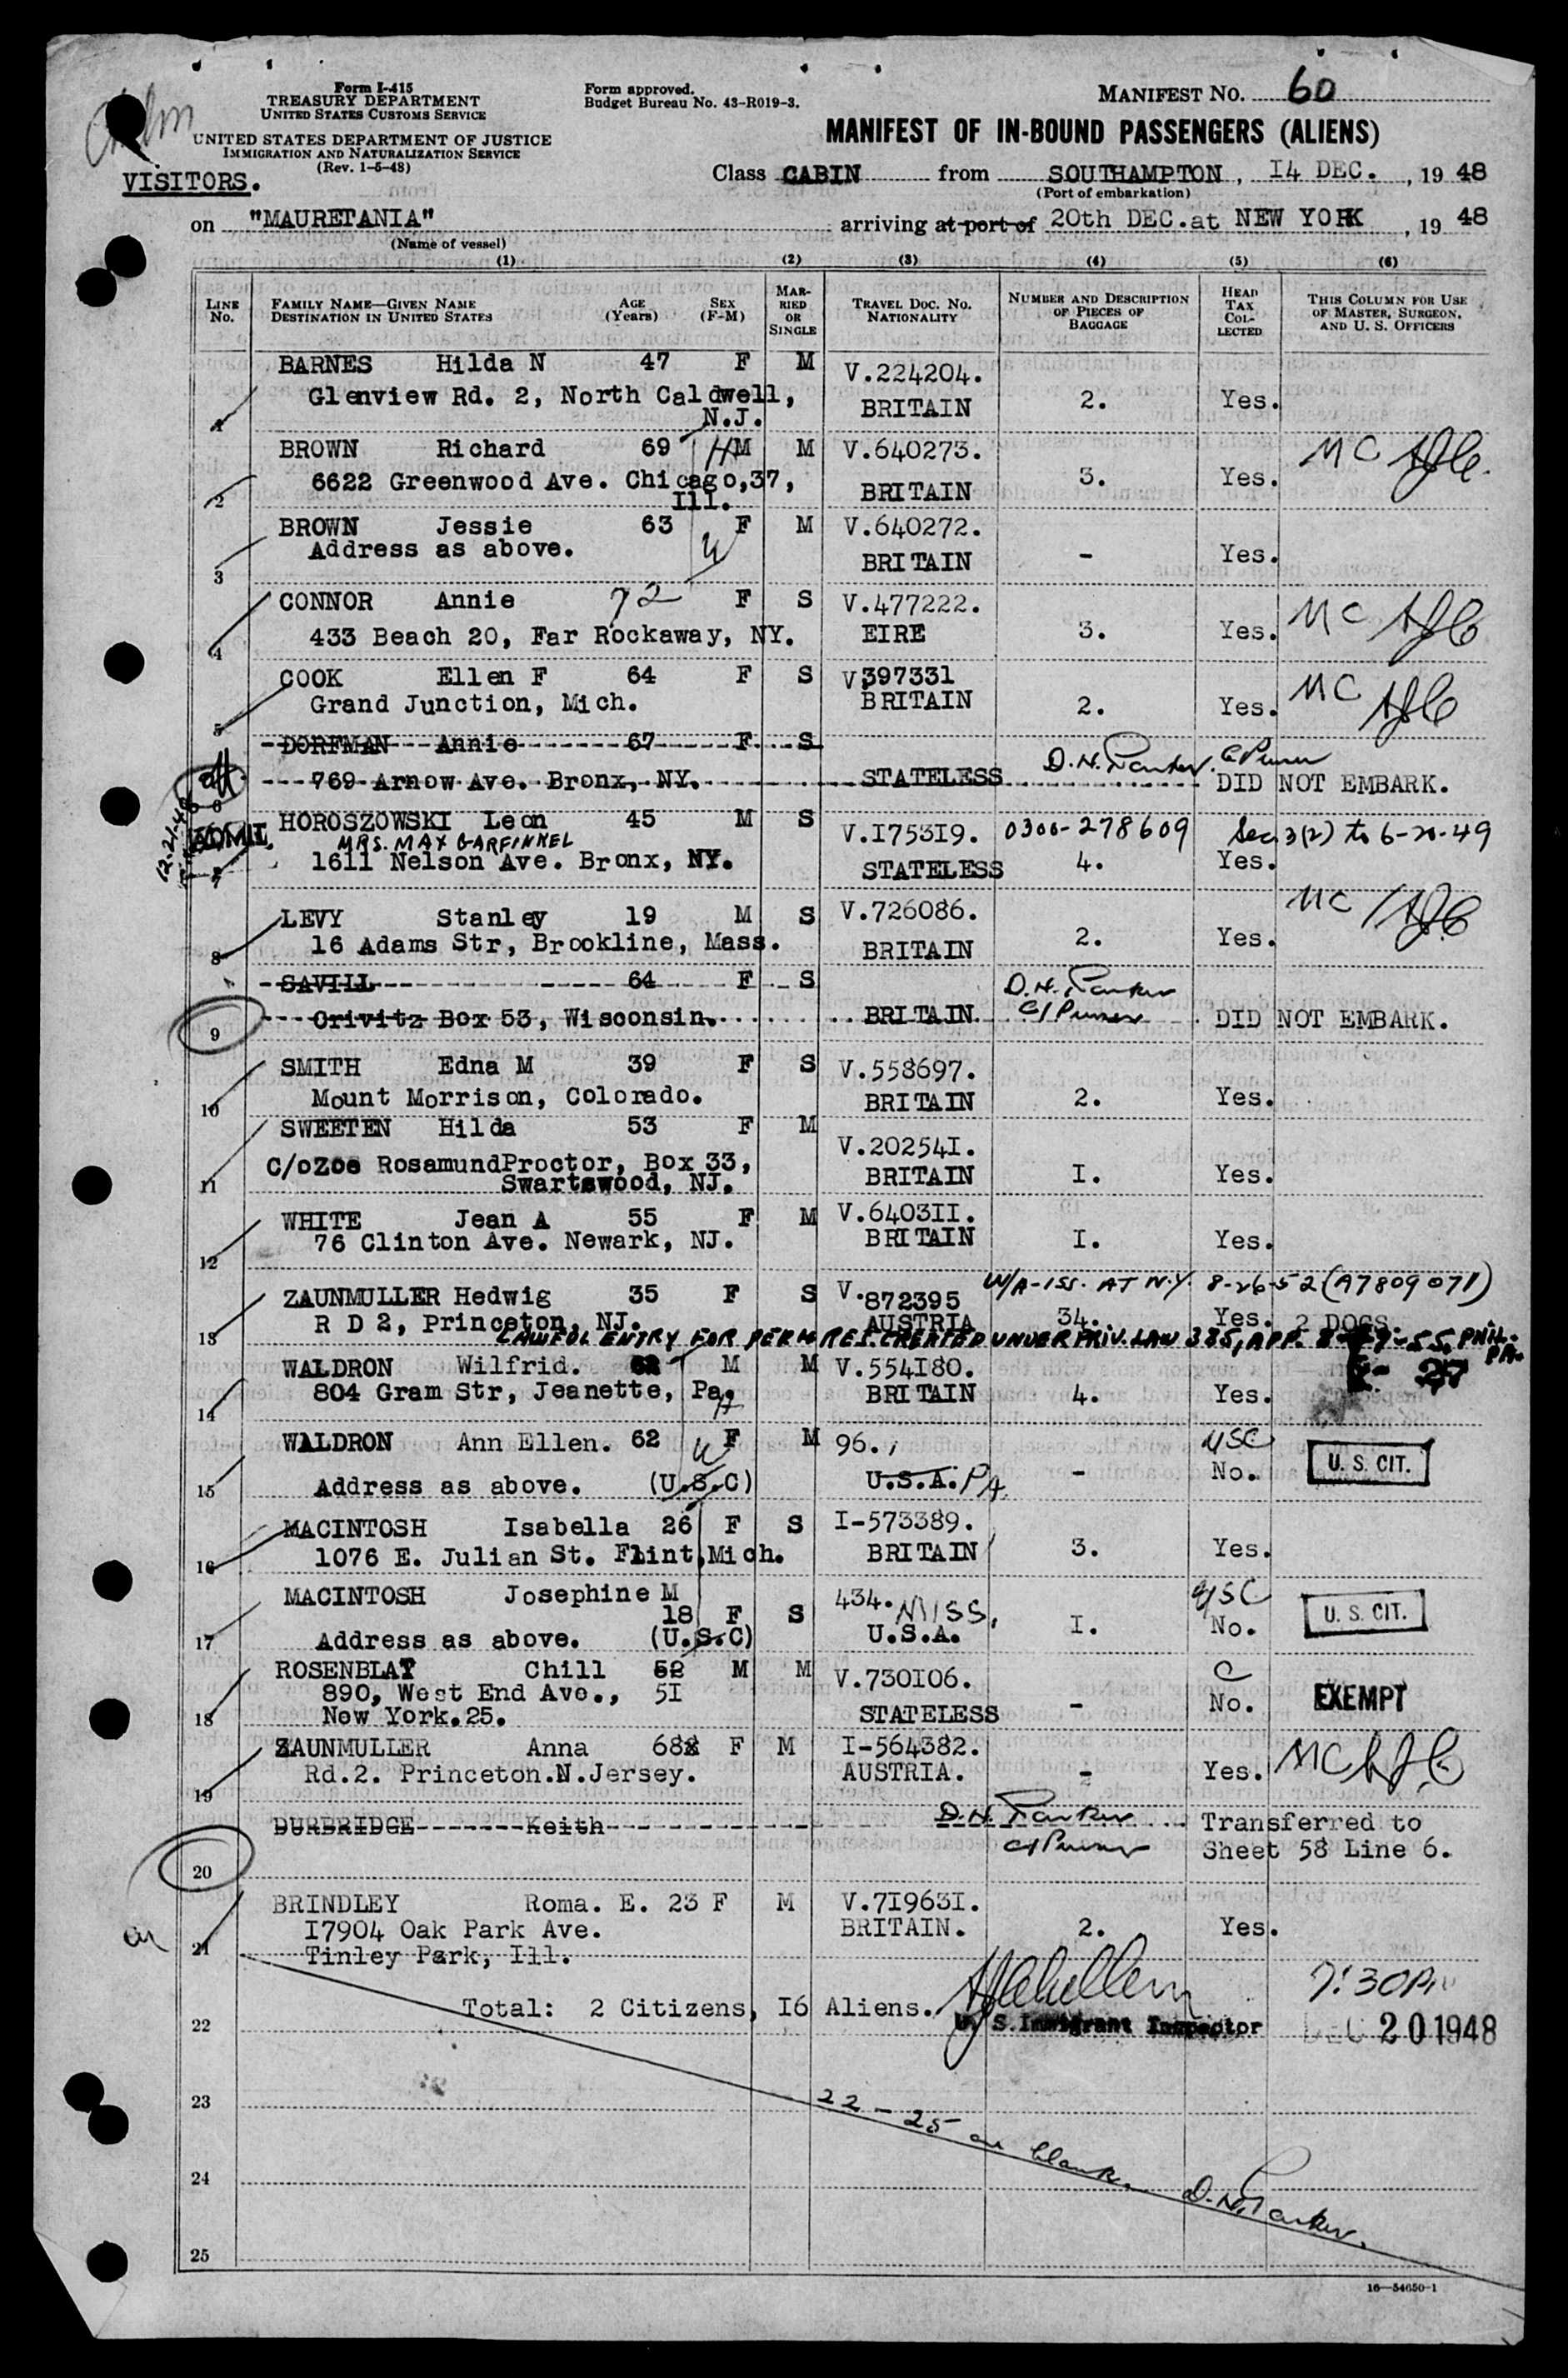 Form I-415
TREASURY DEPARTMENT
UNITED STATES CUSTOMS SERVICE
UNITED STATES DEPARTMENT OF JUSTICE
IMMIGRATION AND NATURALIZATION SERVICE
(Rev. 1-5-48)
VISITORS.
Form approved.
Budget Bureau No. 43-R019-3.
MANIFEST NO. 60
MANIFEST OF IN-BOUND PASSENGERS (ALIENS)
Class CABIN from SOUTHAMPTON, 14 DEC., 19 48
(Port of embarkation)
on "MAURETANIA" arriving at port of 20th DEC. at NEW YORK, 19 48
(Name of vessel)
(1) (2) (3) (4) (5) (6)
LINE No.
FAMILY NAME—GIVEN NAME
DESTINATION IN UNITED STATES
AGE (Years)
SEX (F-M)
MARRIED OR SINGLE
TRAVEL DOC. NO.
NATIONALITY
NUMBER AND DESCRIPTION OF PIECES OF BAGGAGE
HEAD TAX COLLECTED
THIS COLUMN FOR USE OF MASTER, SURGEON, AND U. S. OFFICERS
BARNES Hilda N 47 F M V.224204.
1 Glenview Rd. 2, North Caldwell, N.J. BRITAIN 2. Yes.
BROWN Richard 69 H M M V.640273. MC
2 6622 Greenwood Ave. Chicago,37, Ill. BRITAIN 3. Yes.
BROWN Jessie 63 F M V.640272.
W
3 Address as above. BRITAIN - Yes.
CONNOR Annie 72 F S V.477222. MC
4 433 Beach 20, Far Rockaway, NY. EIRE 3. Yes.
COOK Ellen F 64 F S V397331 MC
5 Grand Junction, Mich. BRITAIN 2. Yes.
DORFMAN Annie 67 F S D.H. Parker
6 769 Arnow Ave. Bronx, NY. STATELESS DID NOT EMBARK.
HOROSZOWSKI Leon 45 M S V.I75319. 0300-278609 Sec 3(2) to 6-20-49
MRS. MAX GARFINKEL
7 1611 Nelson Ave. Bronx, NY. STATELESS 4. Yes.
LEVY Stanley 19 M S V.726086. MC
8 16 Adams Str, Brookline, Mass. BRITAIN 2. Yes.
SAVILL 64 F S D.H. Parker
9 Crivitz Box 53, Wisconsin. BRITAIN DID NOT EMBARK.
SMITH Edna M 39 F S V.558697.
10 Mount Morrison, Colorado. BRITAIN 2. Yes.
SWEETEN Hilda 53 F M V.20254I.
11 C/oZoe RosamundProctor, Box 33, BRITAIN I. Yes.
Swartswood, NJ.
WHITE Jean A 55 F M V.6403II.
12 76 Clinton Ave. Newark, NJ. BRITAIN I. Yes.
ZAUNMULLER Hedwig 35 F S V.872395 W/A-ISS. AT N.Y. 8-26-52 (A7809071)
13 R D 2, Princeton, NJ. AUSTRIA 34. Yes. 2 DOGS.
LAWFUL ENTRY FOR PERM RES. CREATED UNDER PRIV. LAW 385, APP. PHIL. PA.
WALDRON Wilfrid. M M V.554I80.
14 804 Gram Str, Jeanette, Pa. H BRITAIN 4. Yes.
WALDRON Ann Ellen. 62 W F M 96. USC
15 Address as above. (U.S.C) U.S.A. PA - No. U. S. CIT.
MACINTOSH Isabella 26 F S I-573389.
16 1076 E. Julian St. Flint,Mich. BRITAIN 3. Yes.
MACINTOSH Josephine M 18 F S 434. MISS, USC
17 Address as above. (U.S.C) U.S.A. I. No. U. S. CIT.
ROSENBLAT Chill 52 M M V.730I06. C
890, West End Ave., 5I No. EXEMPT
18 New York.25. STATELESS -
ZAUNMULLER Anna 68 F M I-564382.
19 Rd.2. Princeton.N.Jersey. AUSTRIA. - Yes. MC
DURBRIDGE Keith D.H. Parker Transferred to
20 Sheet 58 Line 6.
BRINDLEY Roma. E. 23 F M V.71963I.
I7904 Oak Park Ave. BRITAIN. 2. Yes.
21 Tinley Park, Ill.
Total: 2 Citizens, I6 Aliens. 7:30PM
22 U. S. Immigrant Inspector DEC 20 1948
23
22-25 are blank. D.H. Parker.
24
25
16—54650-1